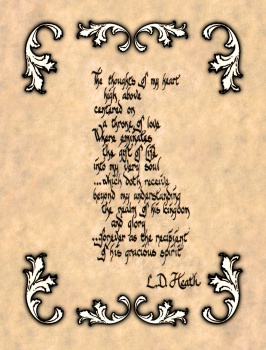 The thoughts of my heart
high above
centered on
a throne of love
Where eminates
the gift of life
into my very soul
...which doth receive
beyond my understanding
the realm of his kingdom
and glory
...forever as the recipient
of his gracious spirit
L.D. Heath